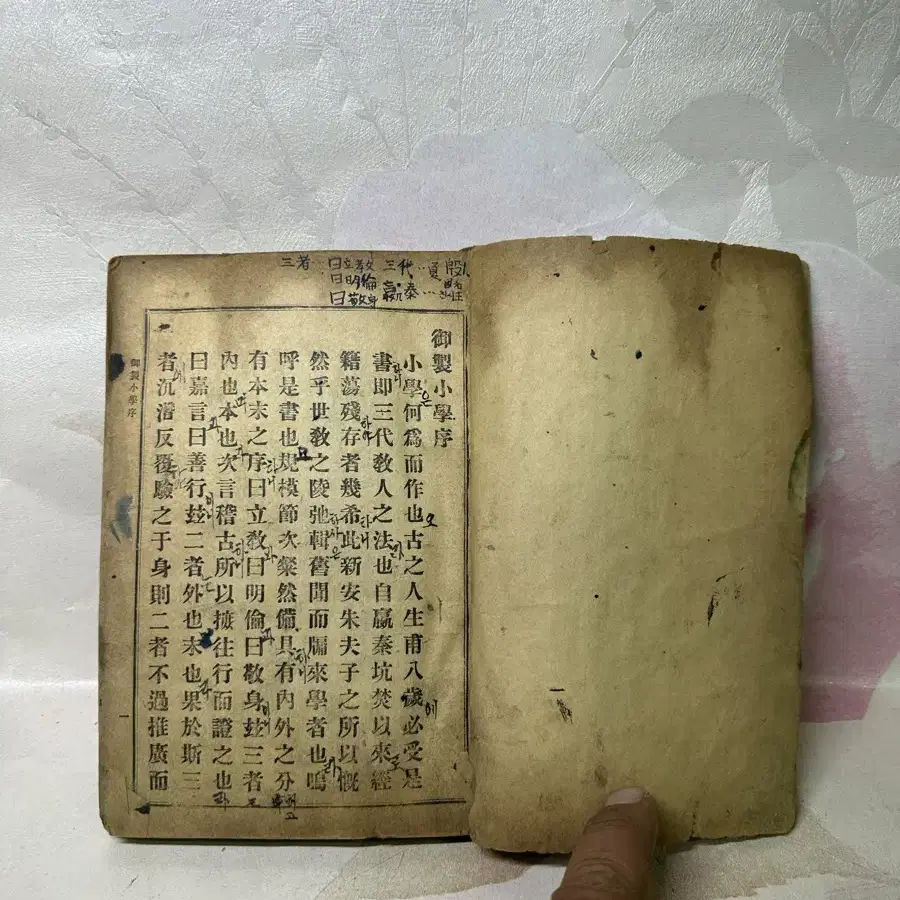 三者 曰立敎 三代 夏 殷
曰明倫
曰敬身 嬴秦
御製小學序
小學何爲而作也古之人生甫八歲必受是
書即三代敎人之法也自嬴秦坑焚以來經
籍蕩殘存者幾希此新安朱夫子之所以慨
然乎世敎之陵弛輯舊聞而牖來學者也嗚
呼是書也規模節次粲然備具有內外之分
有本末之序曰立敎曰明倫曰敬身玆三者
內也本也次言稽古所以摭往行而證之也
曰嘉言曰善行玆二者外也末也果於斯三
者沉潛反覆驗之于身則二者不過推廣而
御製小學序
一